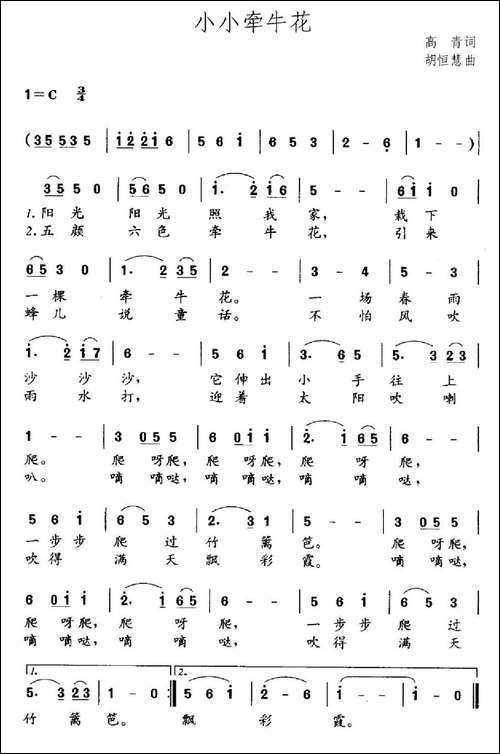 小小牵牛花
高 青词
胡恒慧曲
1=C 3/4
(35535 | 12216 | 5 6 1 | 6 5 3 | 2 - 6 | 1 - - )|
3550 | 5650 | 1. 2 16 | 5 - - | 6110 |
1.阳光 阳光 照 我 家, 栽下
2.五颜 六色 牵 牛 花, 引来
6530 | 1. 235 | 2 - - | 3 3 4 | 5 5 3 |
一棵 牵 牛 花。 一 场 春雨
蜂儿 说 童 话。 不 怕 风吹
1. 2 17 | 6 - - | 5 6 1 | 3. 6 5 | 5. 3 23 |
沙 沙 沙, 它伸出 小 手 往 上
雨 水 打, 迎着 太 阳 吹 喇
1 - - | 3 055 | 6 011 | 6 011 | 2. 1 65 |
爬。 爬 呀爬, 爬 呀爬, 爬 呀爬, 爬 呀 爬,
叭。 嘀 嘀哒, 嘀 嘀哒, 嘀 嘀哒, 嘀 嘀 哒,
5 6 1 | 6 5 3 | 2. 3 1 | 5 - - | 3 055 |
一步步 爬 过 竹 篱 笆。 爬 呀爬,
吹得 满 天 飘 彩 霞。 嘀 嘀哒,
6 011 | 6 011 | 2. 1 65 | 5 6 1 | 6 5 3 |
爬 呀爬, 爬 呀爬, 爬 呀 爬, 一步步 爬 过
嘀 嘀哒, 嘀 嘀哒, 嘀 嘀 哒, 吹得 满 天
1. 2.
5. 323 | 1 0 0 :| 5 6 1 | 2 - 6 | 1 - - | 1 - - ||
竹 篱 笆。 飘 彩 霞。